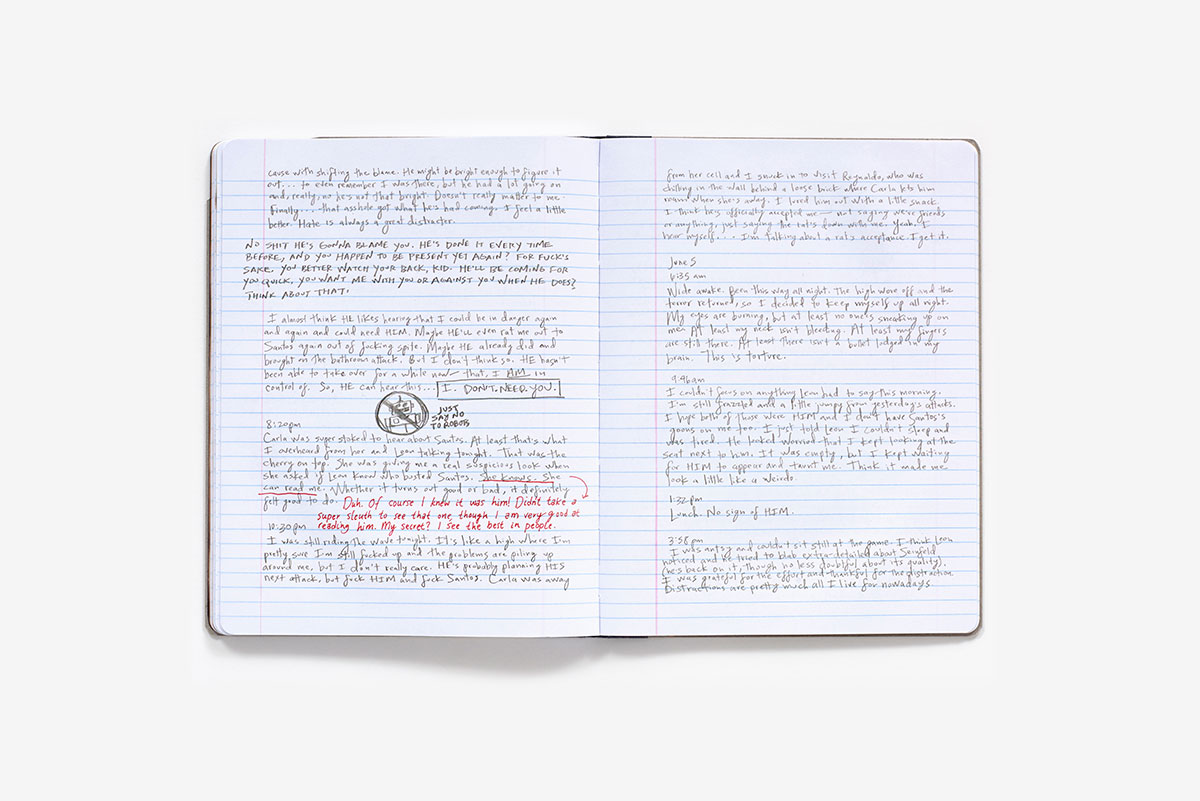 cause with shifting the blame. He might be bright enough to figure it
out... to even remember I was there, but he had a lot going on
and, really, no he's not that bright. Doesn't really matter to me.
Finally... that asshole got what he's had coming. I feel a little
better. Hate is always a great distracter.
NO SHIT HE'S GONNA BLAME YOU. HE'S DONE IT EVERY TIME
BEFORE, AND YOU HAPPEN TO BE PRESENT YET AGAIN? FOR FUCK'S
SAKE. YOU BETTER WATCH YOUR BACK, KID. HE'LL BE COMING FOR
YOU QUICK. YOU WANT ME WITH YOU OR AGAINST YOU WHEN HE DOES?
THINK ABOUT THAT.
I almost think HE likes hearing that I could be in danger again
and again and could need HIM. Maybe HE'LL even rat me out to
Santos again out of fucking spite. Maybe HE already did and
brought on the bathroom attack. But I don't think so. HE hasn't
been able to take over for a while now - that, I AM in
control of. So, HE can hear this... I. DON'T. NEED. YOU.
JUST
SAY NO
TO ROBOTS
8:20pm
Carla was super stoked to hear about Santos. At least that's what
I overheard from her and Leon talking tonight. That was the
cherry on top. She was giving me a real suspicious look when
she asked if Leon knew who busted Santos. She knows. She
can read me. Whether it turns out good or bad, it definitely
felt good to do. Duh. Of course I knew it was him! Didn't take a
super sleuth to see that one though I am very good at
reading him. My secret? I see the best in people.
10:30pm
I was still riding the wave tonight. It's like a high where I'm
pretty sure I'm still fucked up and the problems are piling up
around me, but I don't really care. HE's probably planning HIS
next attack, but fuck HIM and fuck Santos. Carla was away
from her cell and I snuck in to visit Reynaldo, who was
chilling in the wall behind a loose brick where Carla lets him
roam when she's away. I lured him out with a little snack.
I think he's officially accepted me - not saying we're friends
or anything, just saying the rat's down with me. Yeah. I
hear myself... I'm talking about a rat's acceptance. I get it.
June 5
6:35 am
Wide awake. Been this way all night. The high wore off and the
terror returned, so I decided to keep myself up all night.
My eyes are burning, but at least no one's sneaking up on
me. At least my neck isn't bleeding. At least my fingers
are still there. At least there isn't a bullet lodged in my
brain. This is torture.
9:46am
I couldn't focus on anything Leon had to say this morning.
I'm still frazzled and a little jumpy from yesterday's attacks.
I hope both of those were HIM and I don't have Santos's
goons on me too. I just told Leon I couldn't sleep and
was tired. He looked worried that I kept looking at the
seat next to him. It was empty, but I kept waiting
for HIM to appear and taunt me. Think it made me
look a little like a weirdo.
1:22pm
Lunch. No sign of HIM.
3:58pm
I was antsy and couldn't sit still at the game. I think Leon
noticed and he tried to blab extra-detailed about Seinfeld
(he's back on it, though no less doubtful about its quality).
I was grateful for the effort and thankful for the distraction.
Distractions are pretty much all I live for nowadays.